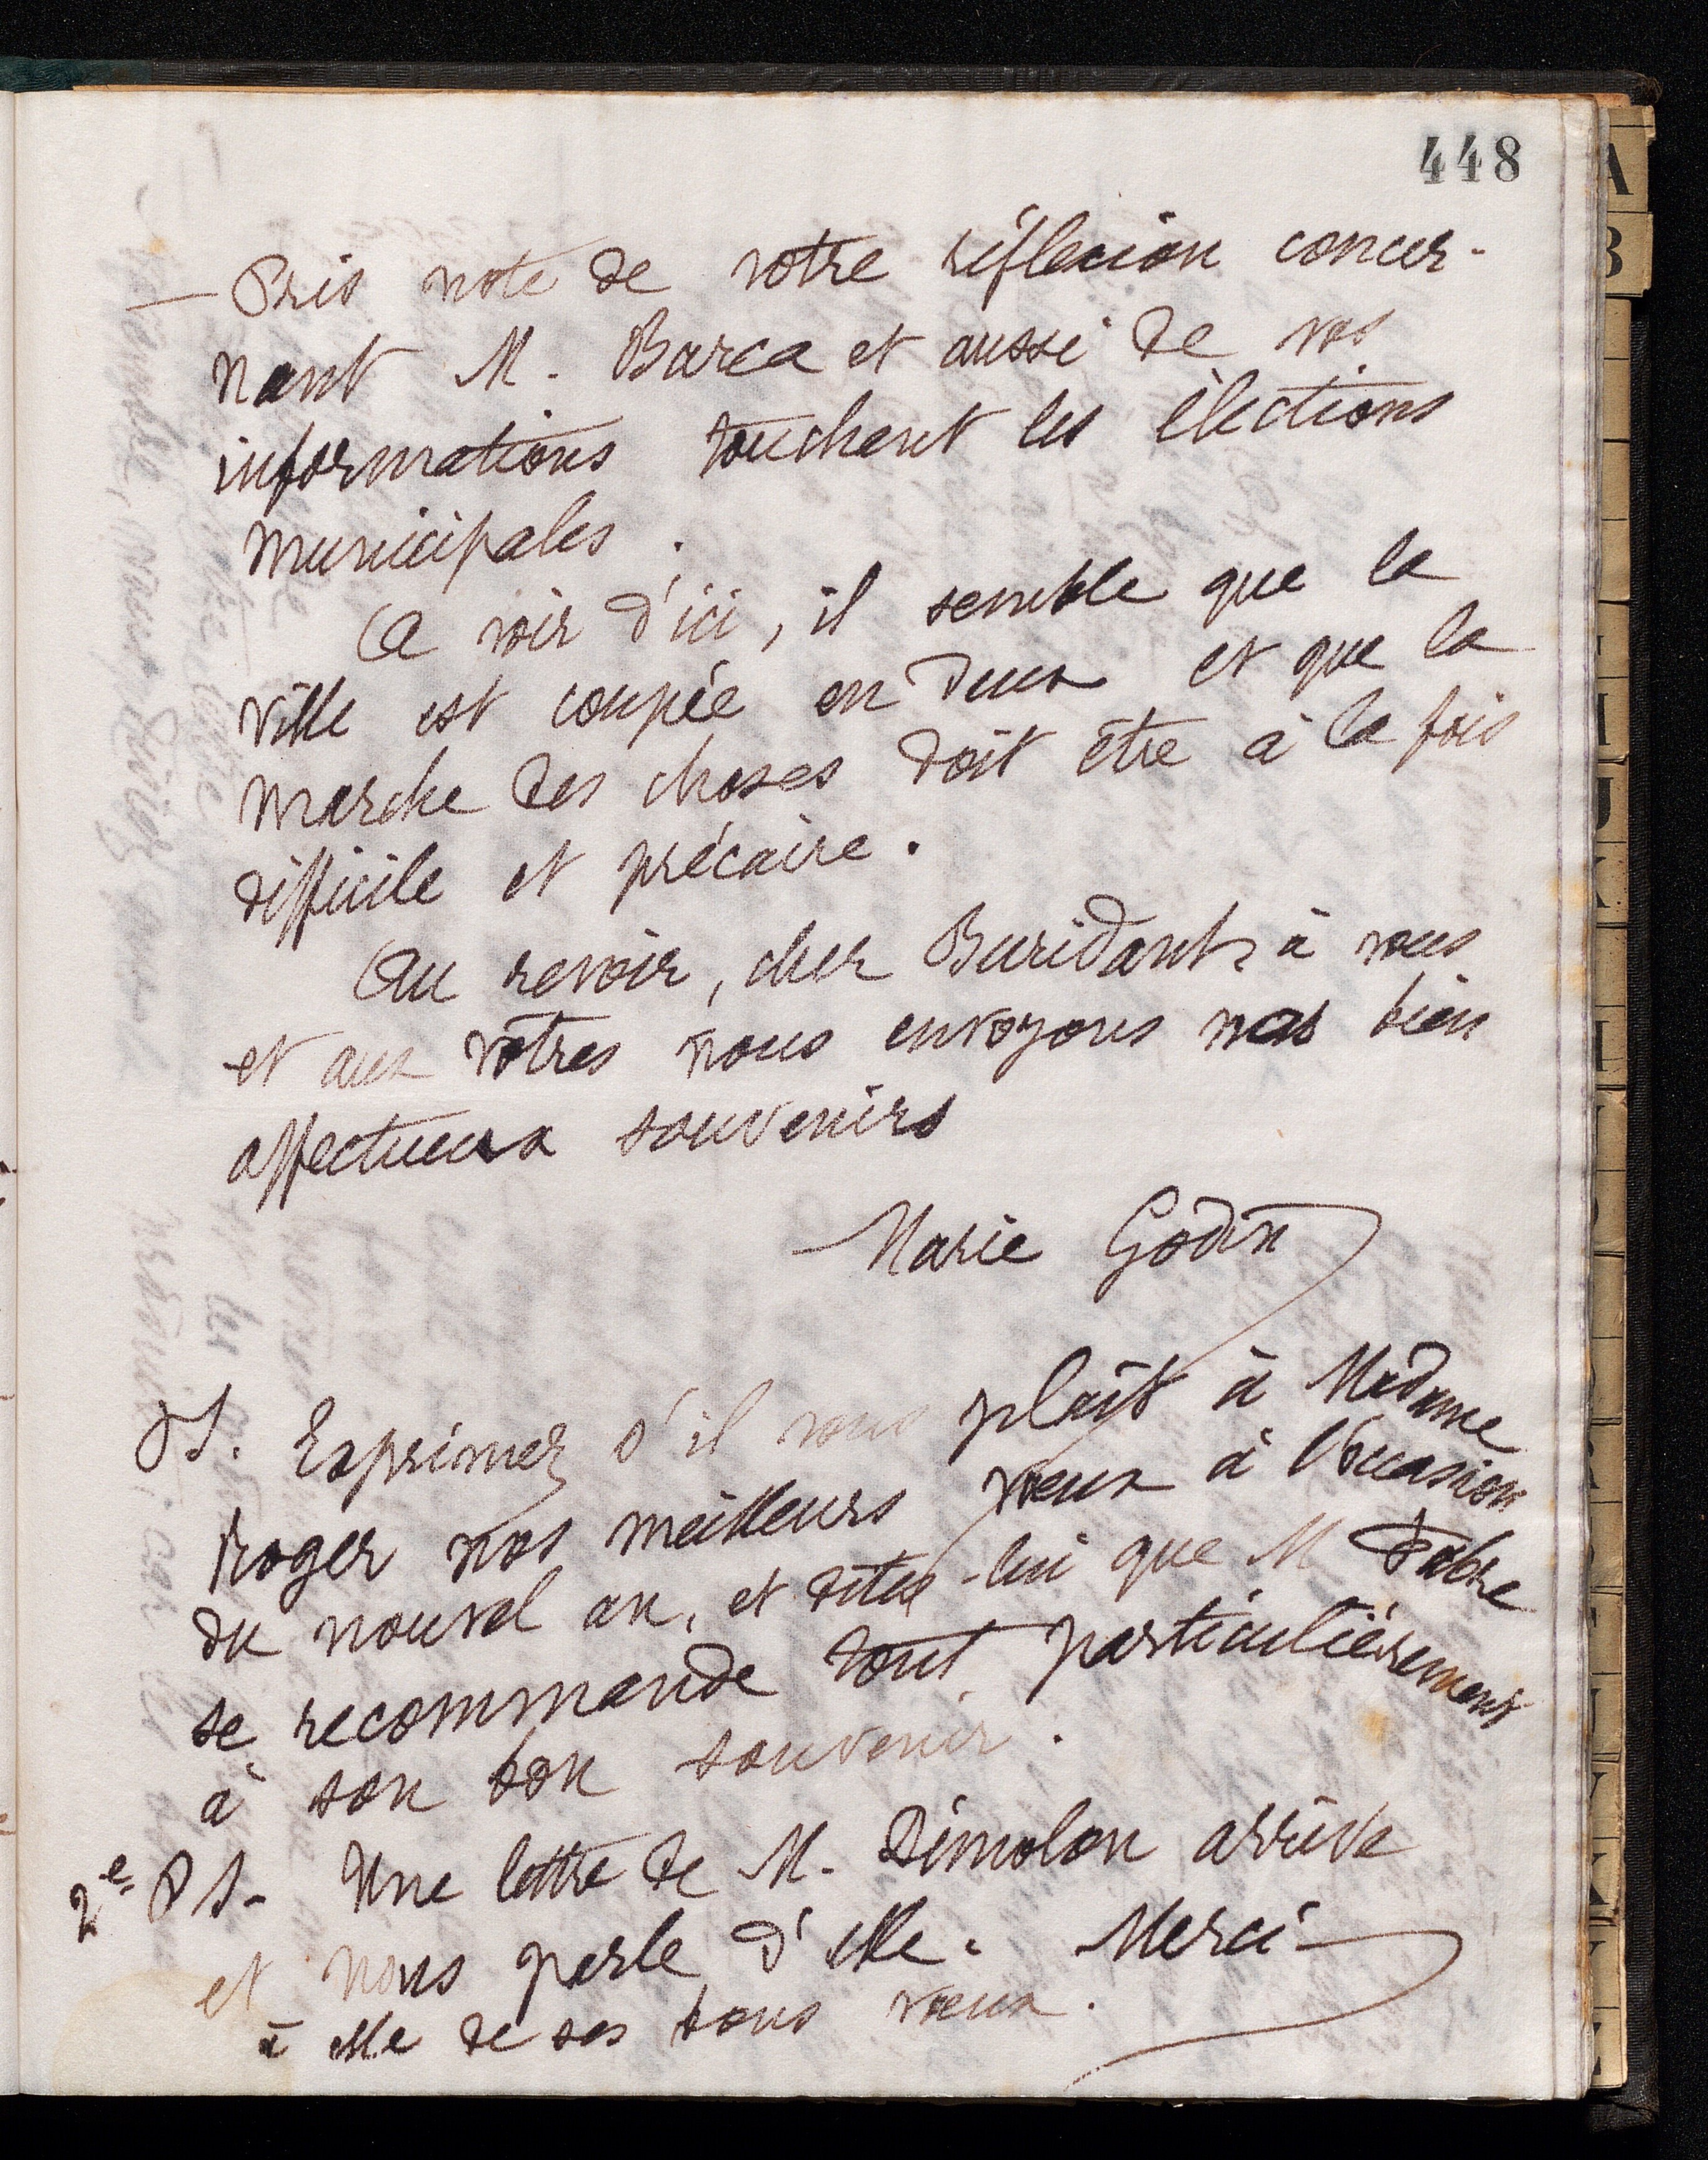 448
— Pris note de votre réflexion concer-
nant M. Barca et aussi de vos
informations touchant les élections
municipales.
A voir d'ici, il semble que la
ville est coupée en deux et que la
marche des choses doit être à la fois
difficile et précaire.
Au revoir, cher Buridant, à vous
et aux vôtres nous envoyons nos bien
affectueux souvenirs
Marie Godin
PS. Exprimez s'il vous plaît à Madame
Roger nos meilleurs vœux à l'occasion
du nouvel an, et dites-lui que M Fabre
se recommande tout particulièrement
à son bon souvenir.
2e PS - Une lettre de M. Dimolon arrive
et nous parle d'elle. Merci
à elle de ses bons vœux.